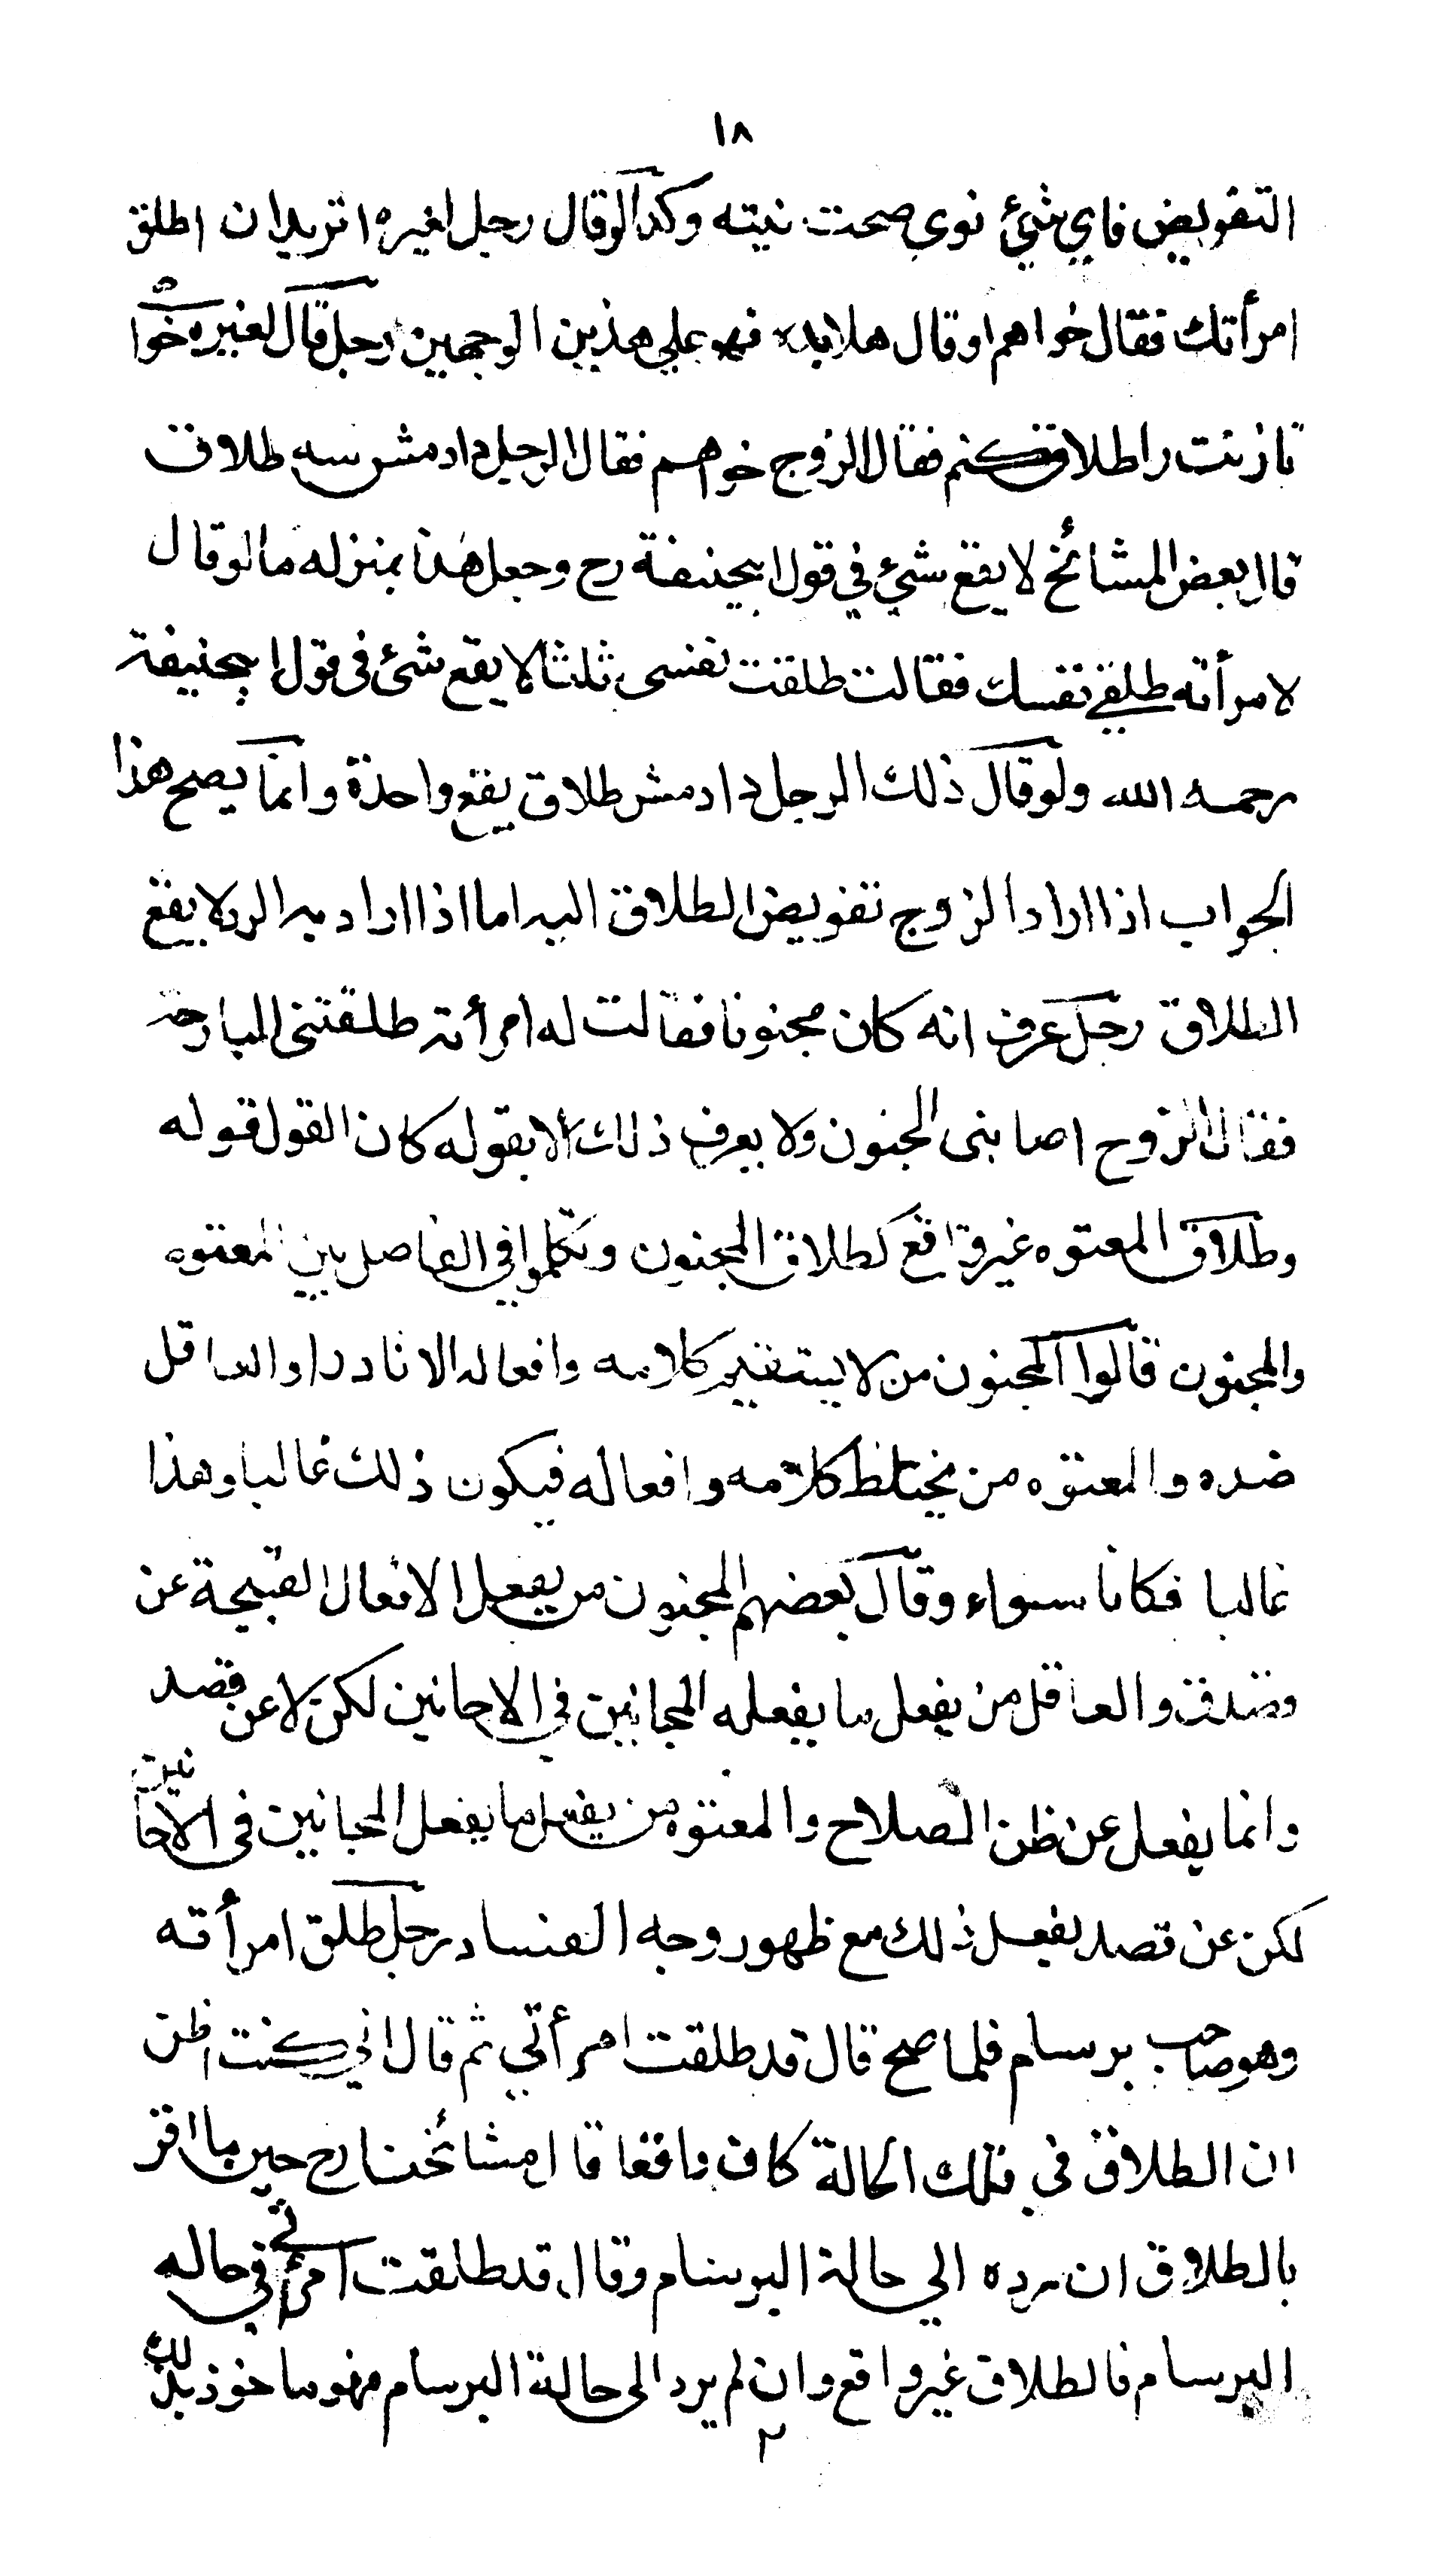 ١٨
التفويض فاي شئ نوى صحت نيته وكذا لو قال رجل لغيره اتريد ان اطلق
امرأتك فقال خواهم او قال هلا بده فهو على هذين الوجهين رجل قال لغيره خواهى
تا زنت را طلاق كنم فقال الزوج خواهم فقال الرجل دادمش سه طلاق
قال بعض المشائخ لا يقع شئ في قول ابيحنيفة رح وجعل هذا بمنزله ما لو قال
لامرأته طلقي نفسك فقالت طلقت نفسى ثلثا لا يقع شئ فى قول ابيحنيفة
رحمه الله ولو قال ذلك الرجل دادمش طلاق يقع واحدة وانما يصح هذا
الجواب اذا اراد الزوج تفويض الطلاق اليه اما اذا اراد به الرد لا يقع
الطلاق رجل عرف انه كان مجنونا فقالت له امرأته طلقتنى البارحة
فقال الزوج اصابنى الجنون ولا يعرف ذلك الا بقوله كان القول قوله
وطلاق المعتوه غير واقع كطلاق المجنون وتكلموا في الفاصل بين المعتوه
والمجنون قالوا المجنون من لا يستقيم كلامه وافعاله الا نادرا والعاقل
ضده والمعتوه من يختلط كلامه وافعاله فيكون ذلك غالبا وهذا
غالبا فكانا سواء وقال بعضهم المجنون من يفعل الافعال القبيحة عن
قصد والعاقل من يفعل ما يفعله المجانين في الاحانين لكن لا عن قصد
وانما يفعل عن ظن الصلاح والمعتوه من يفعل ما يفعل المجانين فى الاحانين
لكن عن قصد يفعل ذلك مع ظهور وجه الفساد رجل طلق امرأته
وهو صاحب برسام فلما صح قال قد طلقت امرأتي ثم قال اني كنت اظن
ان الطلاق في تلك الحالة كان واقعا قال مشائخنا رح حين ما اقر
بالطلاق ان رده الي حالة البرسام وقال قد طلقت امرأتي في حاله
البرسام فالطلاق غير واقع وان لم يرد الى حالة البرسام فهو ماخوذ بذلك
٢